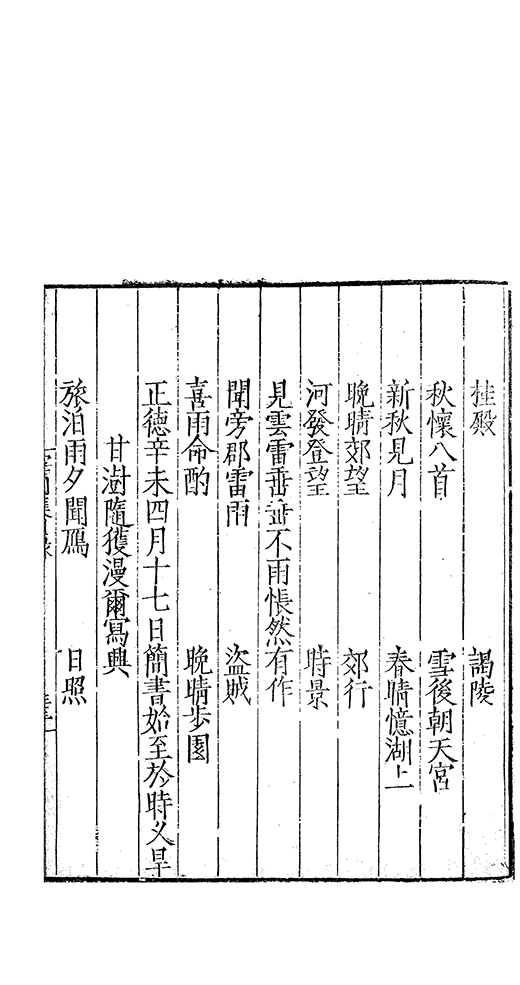 桂殿 謁陵
秋懷八首 雪後朝天宮
新秋見月 春晴憶湖上
晚晴郊望 郊行
河發登望 時景
見雲雷垂垂不雨悵然有作
聞旁郡雷雨 盜賊
喜雨命酌 晚晴步園
正德辛未四月十七日簡書始至於時久旱
甘澍隨獲漫爾寫興
旅泊雨夕聞鴈 日照